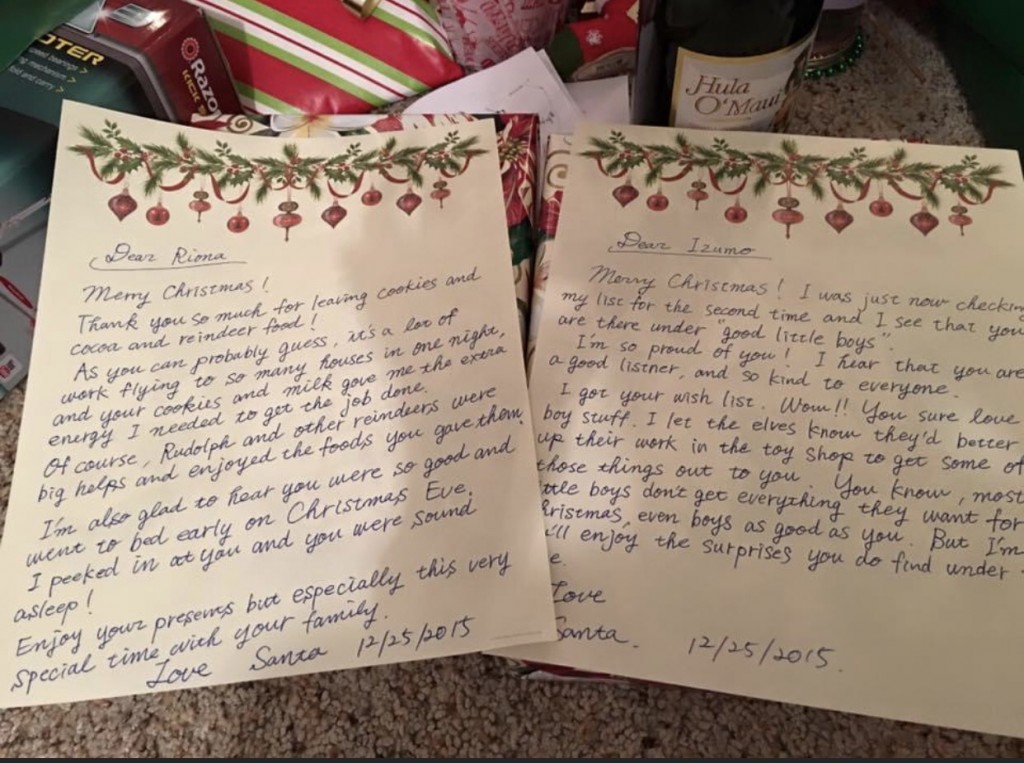 OTER
Razor
KICK S
Hula
O'Maui
Dear Riona
Merry Christmas!
Thank you so much for leaving cookies and
cocoa and reindeer food!
As you can probably guess, it's a lot of
work flying to so many houses in one night,
and your cookies and milk gave me the extra
energy I needed to get the job done.
Of course, Rudolph and other reindeers were
big helps and enjoyed the foods you gave them.
I'm also glad to hear you were so good and
went to bed early on Christmas Eve.
I peeked in at you and you were sound
asleep!
Enjoy your presents but especially this very
special time with your family.
Love Santa 12/25/2015
Dear Izumo
Merry Christmas! I was just now checkin
my list for the second time and I see that you
are there under "good little boys".
I'm so proud of you! I hear that you are
a good listner, and so kind to everyone.
I got your wish list. Wow!! You sure love
boy stuff. I let the elves know they'd better
up their work in the toy shop to get some of
those things out to you. You know, most
ttle boys don't get everything they want for
hristmas, even boys as good as you. But I'm
'll enjoy the surprises you do find under
e.
Love
Santa. 12/25/2015.